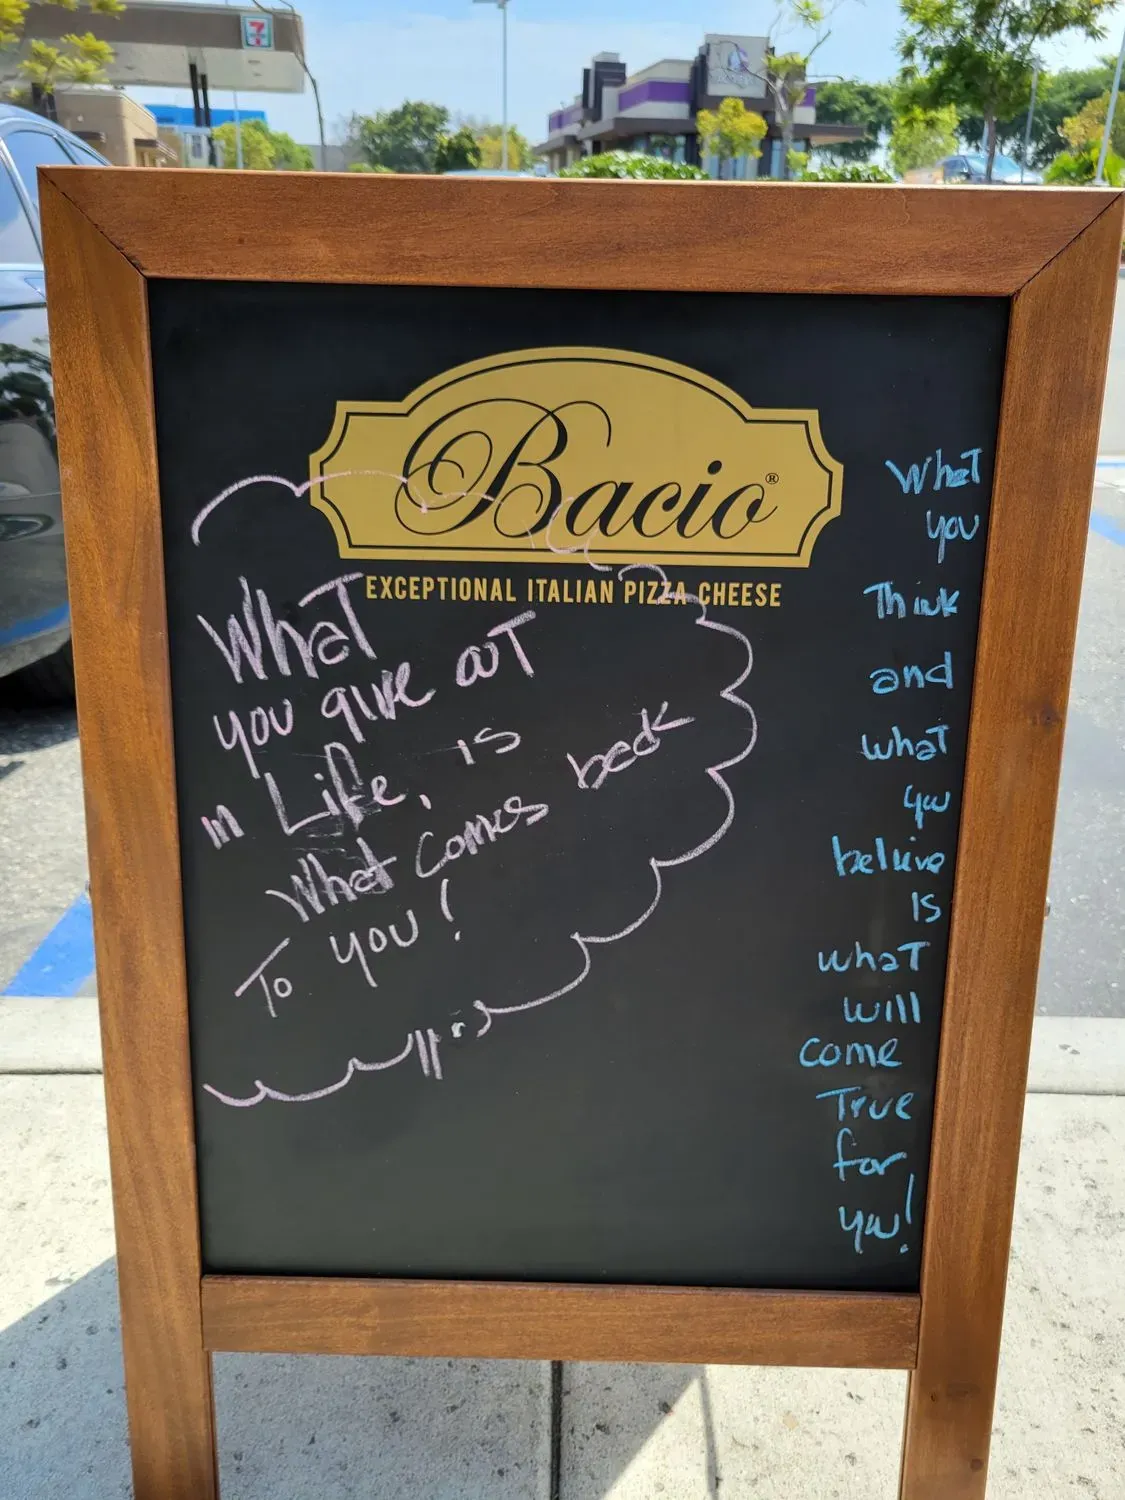 7
Bacio®
EXCEPTIONAL ITALIAN PIZZA CHEESE
What
you give out
in Life, is
What comes back
To you!
What
you
Think
and
what
you
believe
is
what
will
come
True
for
you!